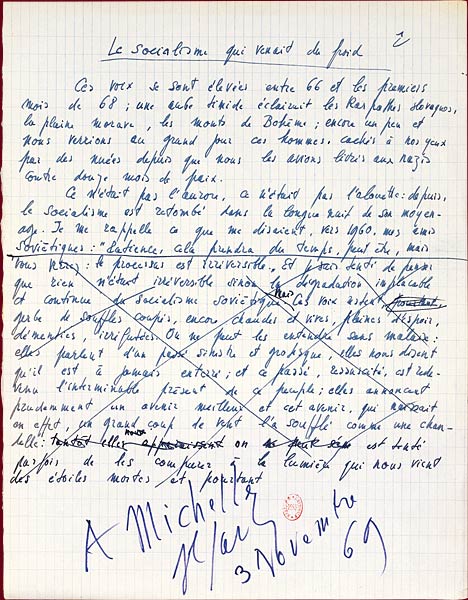 2
Le socialisme qui venait du froid
Ces voix se sont élevées entre 66 et les premiers
mois de 68 ; une aube timide éclairait les Karpathes slovaques,
la plaine morave, les monts de Bohême ; encore un peu et
nous verrions au grand jour ces hommes, cachés à nos yeux
par des nuées depuis que nous les avions livrés aux nazis
contre douze mois de paix.
Ce n'était pas l'aurore, ce n'était pas l'alouette : depuis,
le socialisme est retombé dans la longue nuit de son moyen-
age. Je me rappelle ce que me disaient, vers 1960, mes amis
soviétiques : "Patience, cela prendra du temps, peut être, mais
vous verrez : le processus est irréversible. Et j'ai senti de penser
que rien n'était irréversible sinon la dégradation implacable
et continue du socialisme soviétique. Mais Ces voix restent, pourtant,
perle de souffles coupés, encore chaudes et vives, pleines d'espoirs
démenties, irréfutées. On ne peut les entendre sans malaise :
elles parlent d'un passé sinistre et grotesque, elles nous disent
qu'il est à jamais enterré ; et ce passé, ressuscité, est rede-
venu l'interminable présent de ce peuple ; elles annoncent
prudemment un avenir meilleur et cet avenir, qui naissait
en effet, un grand coup de vent l'a soufflé comme une chan-
delle : tantôt elles nous apparaissent on est tenté
parfois de les comparer à la lumière qui nous vient
des étoiles mortes et pourtant
A Michelle
3 Novembre
69